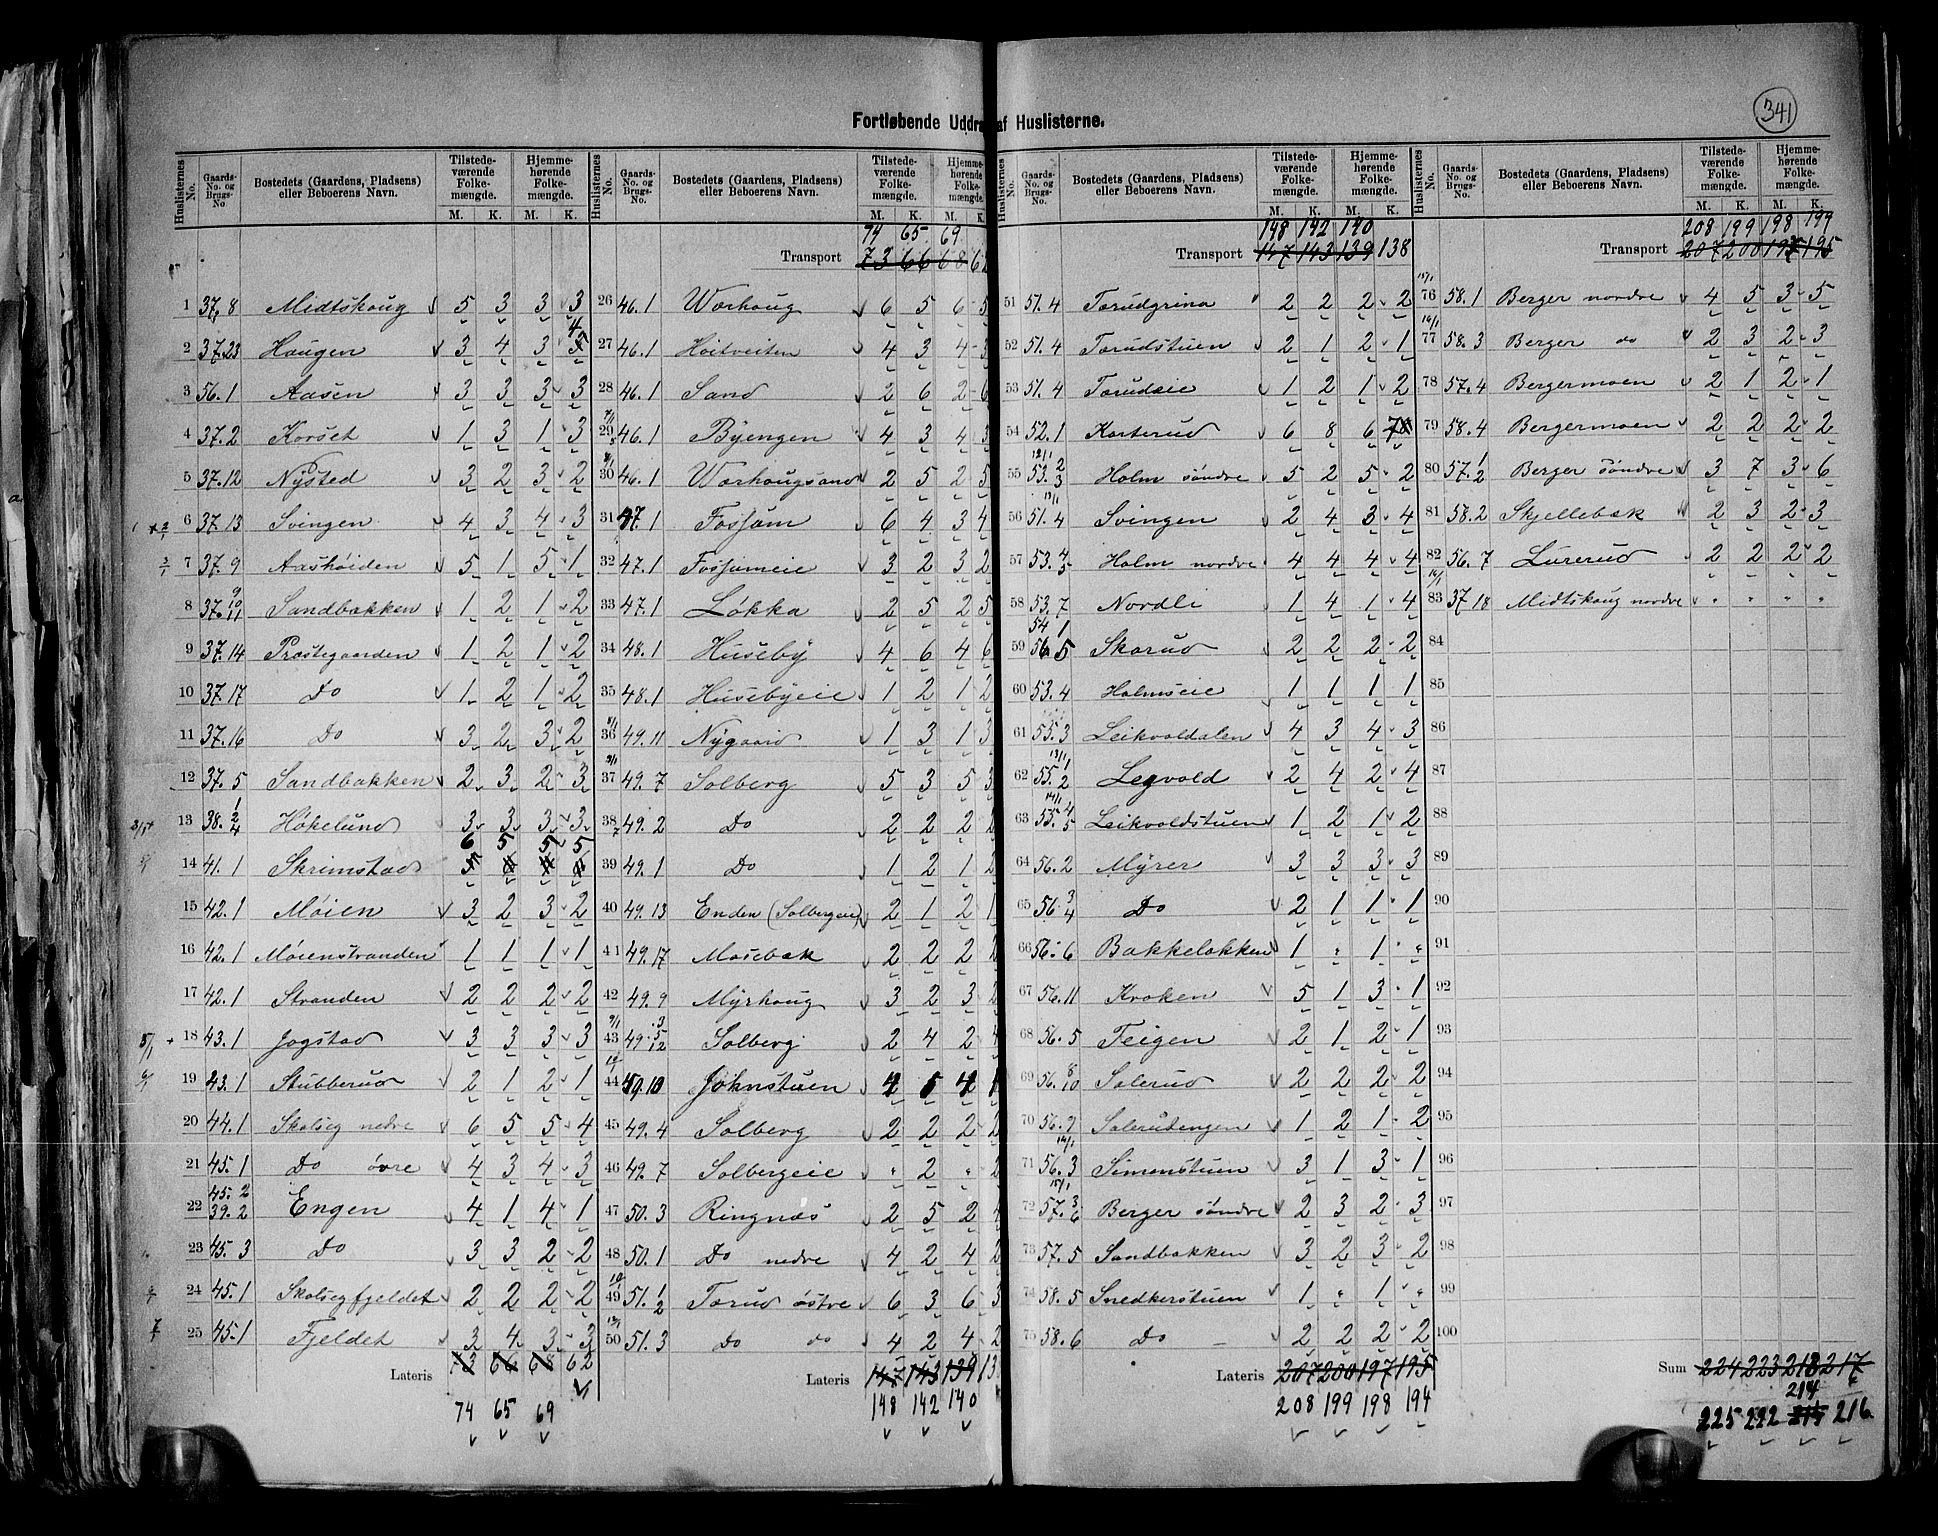 341
Fortløbende Uddra af Huslisterne.
Huslisternes No. Gaards-No. og Brugs-No. Bostedets (Gaardens, Pladsens) eller Beboerens Navn. Tilstedeværende Folkemængde. M. K. Hjemmehørende Folkemængde. M. K.
1 37.8 Midtskoug 5 3 3 3
2 37.23 Haugen 3 4 3 4
3 56.1 Aasen 3 3 3 3
4 37.2 Korset 1 3 1 3
5 37.12 Nysted 3 2 3 2
6 37.13 Svingen 4 3 4 3
7 37.9 Aashøiden 5 1 5 1
8 37. 9 10 11 Sandbakken 1 2 1 2
9 37.14 Præstegaarden 1 2 1 2
10 37.17 Do 1 2 1 2
11 37.16 Do 3 2 3 2
12 37.5 Sandbakken 2 3 2 3
13 38. 1 2 4 Høkelund 3 3 3 3
14 41.1 Skrimstad 6 5 5 5
15 42.1 Møien 3 2 3 2
16 42.1 Møienstranden 1 1 1 1
17 42.1 Stranden 2 2 2 2
18 43.1 Jogstad 3 3 3 3
19 43.1 Stubberud 2 1 2 1
20 44.1 Skolseg nedre 6 5 5 4
21 45.1 Do øvre 4 3 4 3
22 45.2 39.2 Engen 4 1 4 1
23 45.3 Do 3 3 2 2
24 45.1 Skolsegfjeldet 2 2 2 2
25 45.1 Fjeldet 3 4 3 3
Lateris 73 66 68 62
74 65 69
Huslisternes No. Gaards-No. og Brugs-No. Bostedets (Gaardens, Pladsens) eller Beboerens Navn. Tilstedeværende Folkemængde. M. K. Hjemmehørende Folkemængde. M. K.
74 65 69
Transport 73 66 68 62
26 46.1 Warhoug 6 5 6 5
27 46.1 Hvitveiten 4 3 4 3
28 46.1 Sand 2 6 2 6
29 46.1 Byengen 4 3 4 3
30 46.1 Warhougsand 2 5 2 5
31 47.1 Fossum 6 4 3 4
32 47.1 Fossumeie 3 2 3 2
33 47.1 Løkka 2 5 2 5
34 48.1 Huseby 4 6 4 6
35 48.1 Husebyeie 1 2 1 2
36 49.11 Nygaard 1 3 1 3
37 49.7 Solberg 5 3 5 3
38 49.2 Do 2 2 2 2
39 49.1 Do 1 2 1 2
40 49.13 Enden (Solbergeie) 2 1 2 1
41 49.17 Mosebæk 2 2 2 2
42 49.9 Myrhoug 3 2 3 2
43 49. 3 5 12 Solberg 2 4 2 4
44 50.10 Johnstuen 4 5 4
45 49.4 Solberg 2 2 2 2
46 49.7 Solbergeie " 2 " 2
47 50.3 Ringnæs 2 5 2 4
48 50.1 Do nedre 4 2 4 2
49 51. 1 2 Torud østre 6 3 6 3
50 51.3 Do do 4 2 4 2
Lateris 147 143 139 13
148 142 140
Huslisternes No. Gaards-No. og Brugs-No. Bostedets (Gaardens, Pladsens) eller Beboerens Navn. Tilstedeværende Folkemængde. M. K. Hjemmehørende Folkemængde. M. K.
148 142 140
Transport 147 143 139 138
51 51.4 Torudgrina 2 2 2 2
52 51.4 Torudstuen 2 1 2 1
53 51.4 Torudeie 1 2 1 2
54 52.1 Karterud 6 8 6 7
55 53. 2 3 Holm søndre 5 2 5 2
56 51.4 Svingen 2 4 3 4
57 53. 4 3 Holm nordre 4 4 4 4
58 53.7 Nordli 1 4 1 4
59 54 1 56.5 Skarud 2 2 2 2
60 53.4 Holmseie 1 1 1 1
61 55.3 Leikvoldalen 4 3 4 3
62 55.2 Legvold 2 4 2 4
63 55. 4 5 Leikvoldstuen 1 2 1 2
64 56.2 Myrer 3 3 3 3
65 56. 3 4 Do 2 1 1 1
66 56.6 Bakkeløkken 1 " 1 "
67 56.11 Kroken 5 1 3 1
68 56.5 Teigen 2 1 2 1
69 56. 8 10 Solerud 2 2 2 2
70 56.2 Solerudengen 1 2 1 2
71 56.3 Simenstuen 3 1 3 1
72 57. 3 6 Berger søndre 2 3 2 3
73 57.5 Sandbakken 3 2 3 2
74 58.5 Snedkerstuen 1 " 1 "
75 58.6 Do 2 2 2 2
Lateris 207 200 197 195
208 199 198 194
Huslisternes No. Gaards-No. og Brugs-No. Bostedets (Gaardens, Pladsens) eller Beboerens Navn. Tilstedeværende Folkemængde. M. K. Hjemmehørende Folkemængde. M. K.
208 199 198 199
Transport 207 200 197 195
76 58.1 Berger nordre 4 5 3 5
77 58.3 Berger do 2 3 2 3
78 57.4 Bergermoen 2 1 2 1
79 58.4 Bergermoen 2 2 2 2
80 57. 1 2 Berger søndre 3 7 3 6
81 58.2 Skjellebæk 2 3 2 3
82 56.7 Lurerud 2 2 2 2
83 37 18 Midtskoug nordre " " " "
84
85
86
87
88
89
90
91
92
93
94
95
96
97
98
99
100
Sum 224 223 213 217
214
225 222 215 216